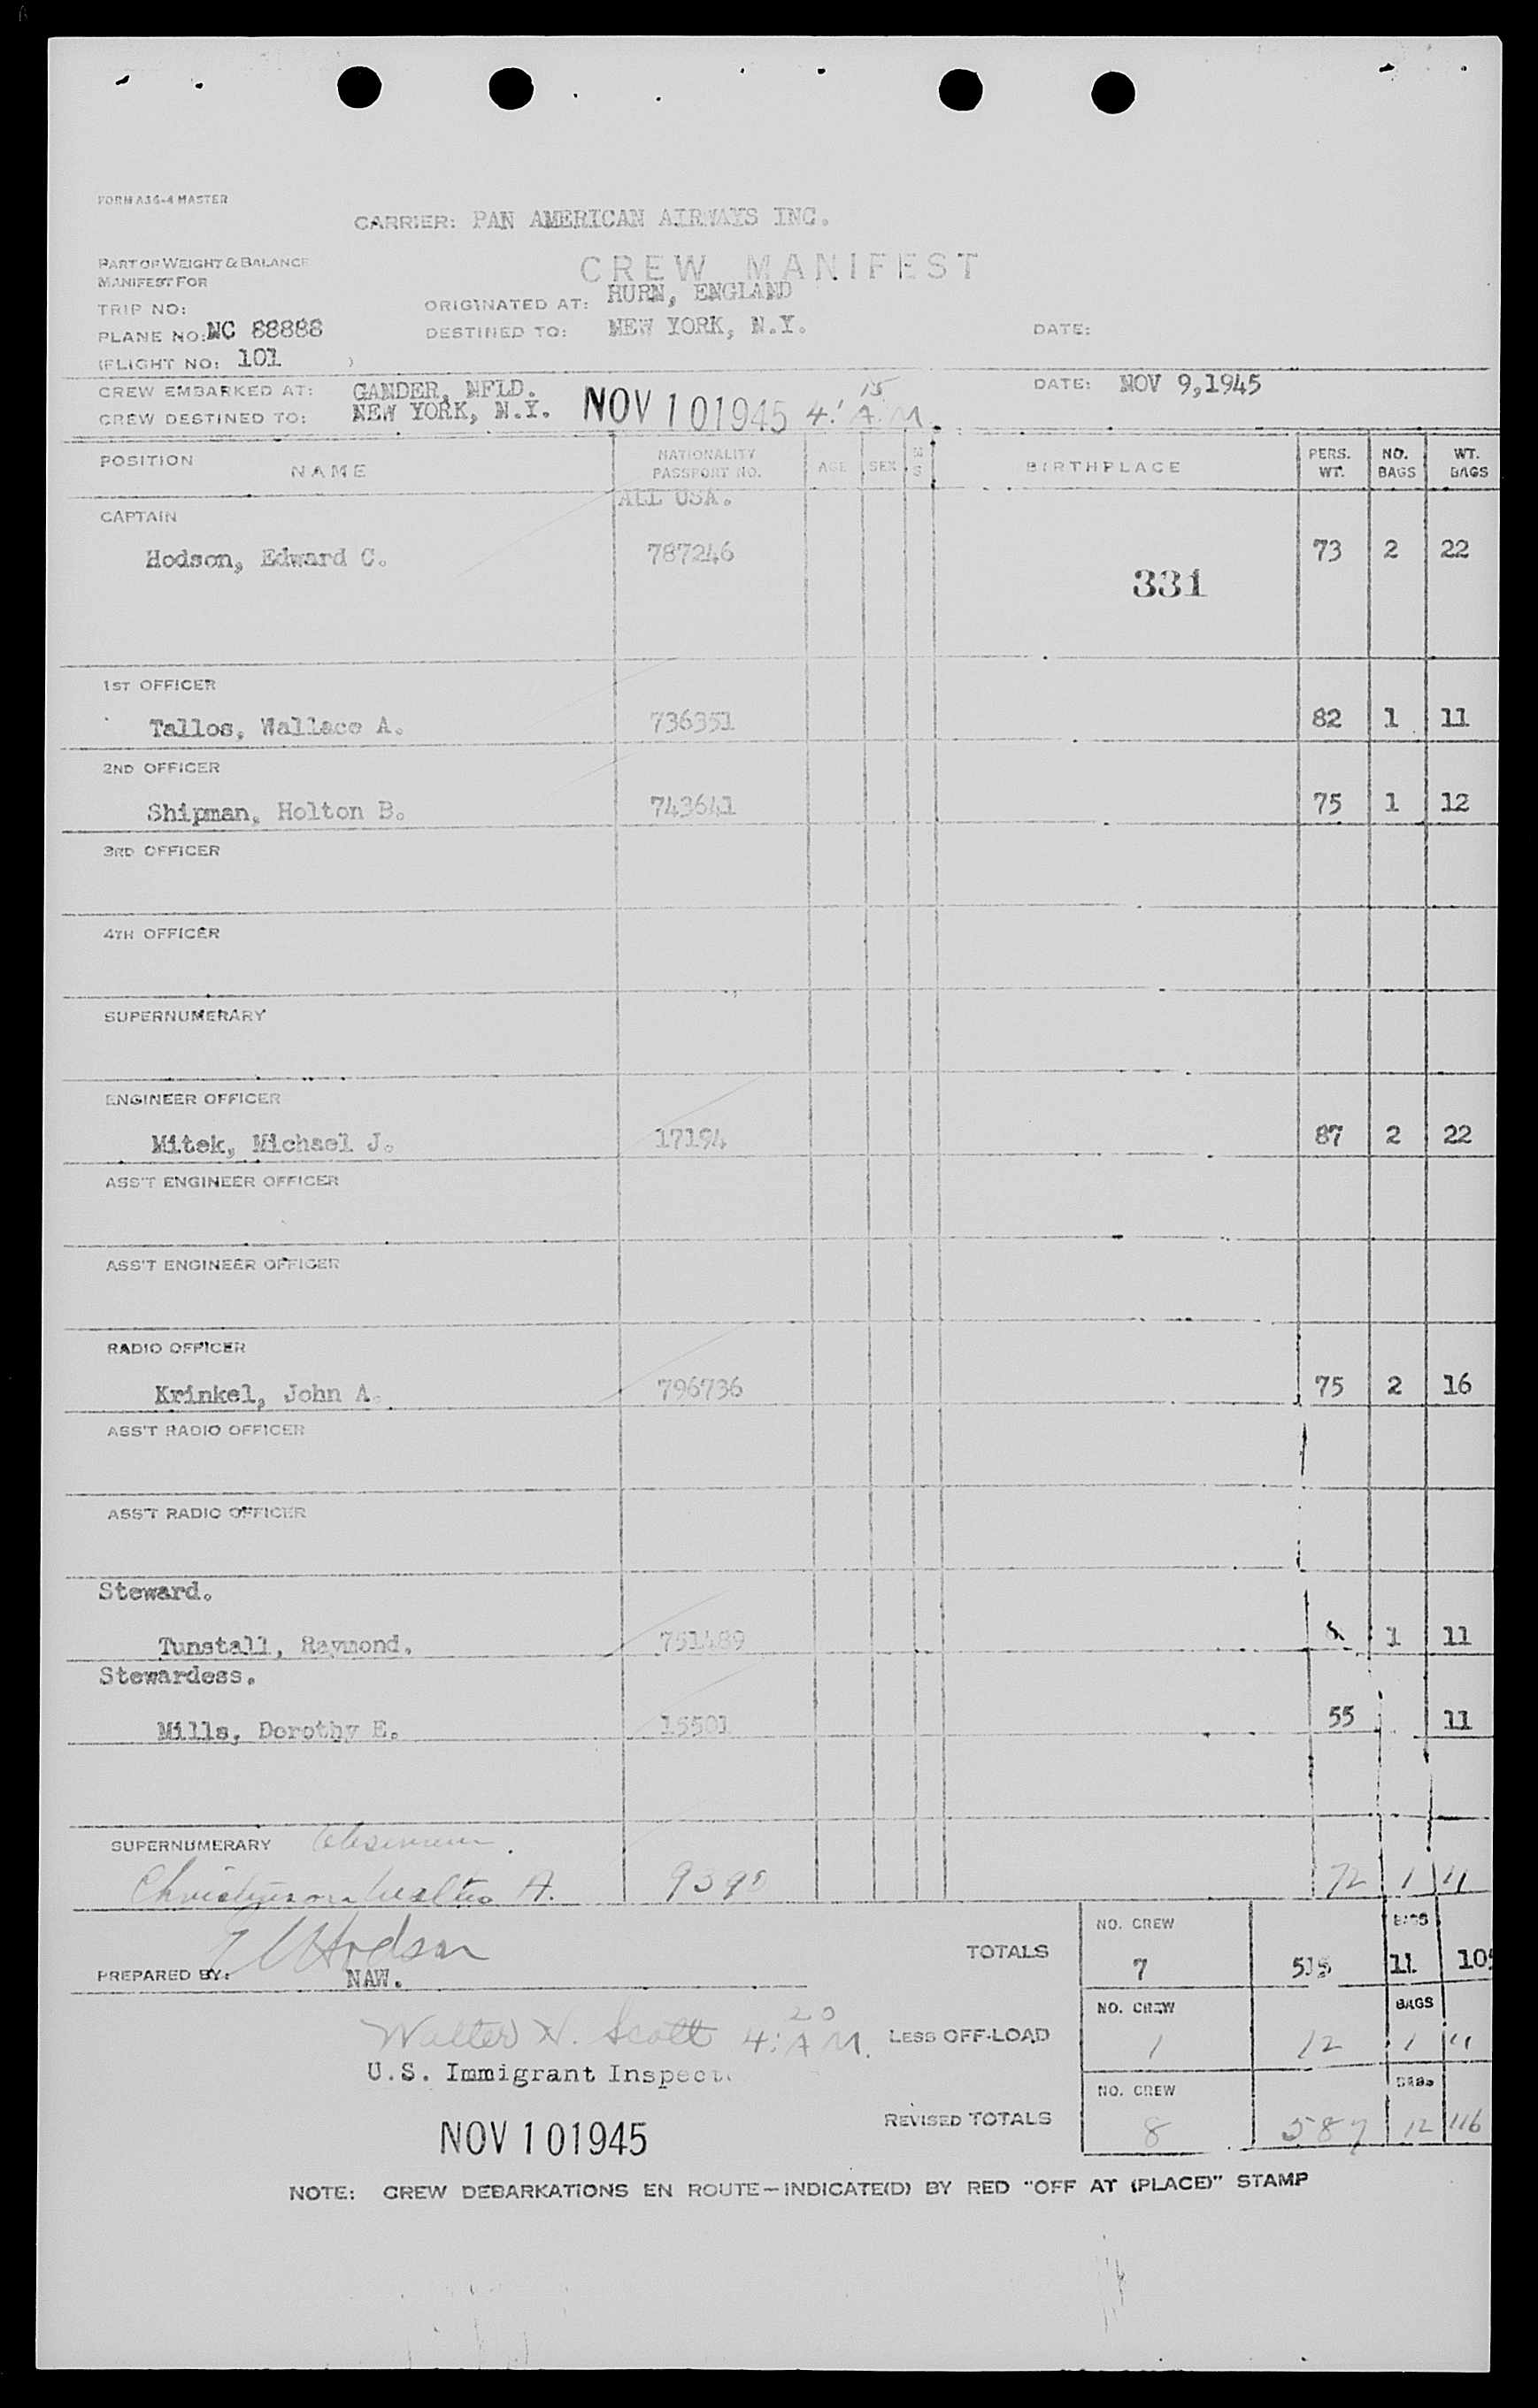 FORM A36-4 MASTER
CARRIER: PAN AMERICAN AIRWAYS INC.
PART OF WEIGHT & BALANCE
MANIFEST FOR
CREW MANIFEST
TRIP NO:
ORIGINATED AT: HURN, ENGLAND
PLANE NO: NC 88888
DESTINED TO: NEW YORK, N.Y.
DATE:
(FLIGHT NO: 101 )
CREW EMBARKED AT: GANDER, NFLD.
DATE: NOV 9,1945
CREW DESTINED TO: NEW YORK, N.Y. NOV 10 1945 4:15 A.M.
POSITION NAME NATIONALITY PASSPORT NO. AGE SEX M S BIRTHPLACE PERS. WT. NO. BAGS WT. BAGS
ALL USA.
CAPTAIN
Hodson, Edward C. 787246 73 2 22
331
1ST OFFICER
Tallos, Wallace A. 736351 82 1 11
2ND OFFICER
Shipman, Holton B. 743641 75 1 12
3RD OFFICER
4TH OFFICER
SUPERNUMERARY
ENGINEER OFFICER
Mitek, Michael J. 17194 87 2 22
ASS'T ENGINEER OFFICER
ASS'T ENGINEER OFFICER
RADIO OFFICER
Krinkel, John A. 796736 75 2 16
ASS'T RADIO OFFICER
ASS'T RADIO OFFICER
Steward.
Tunstall, Raymond. 751489 1 11
Stewardess.
Mills, Dorothy E. 15501 55 11
SUPERNUMERARY
A. 72 1 11
E C Hodson
PREPARED BY: NAW.
TOTALS NO. CREW 7 515 BAGS 11 105
Walter H. Scott 4:20 A.M.
LESS OFF-LOAD NO. CREW 1 BAGS 1 11
U.S. Immigrant Inspect.
REVISED TOTALS NO. CREW 8 587 BAGS 12 116
NOV 10 1945
NOTE: CREW DEBARKATIONS EN ROUTE—INDICATE(D) BY RED "OFF AT (PLACE)" STAMP